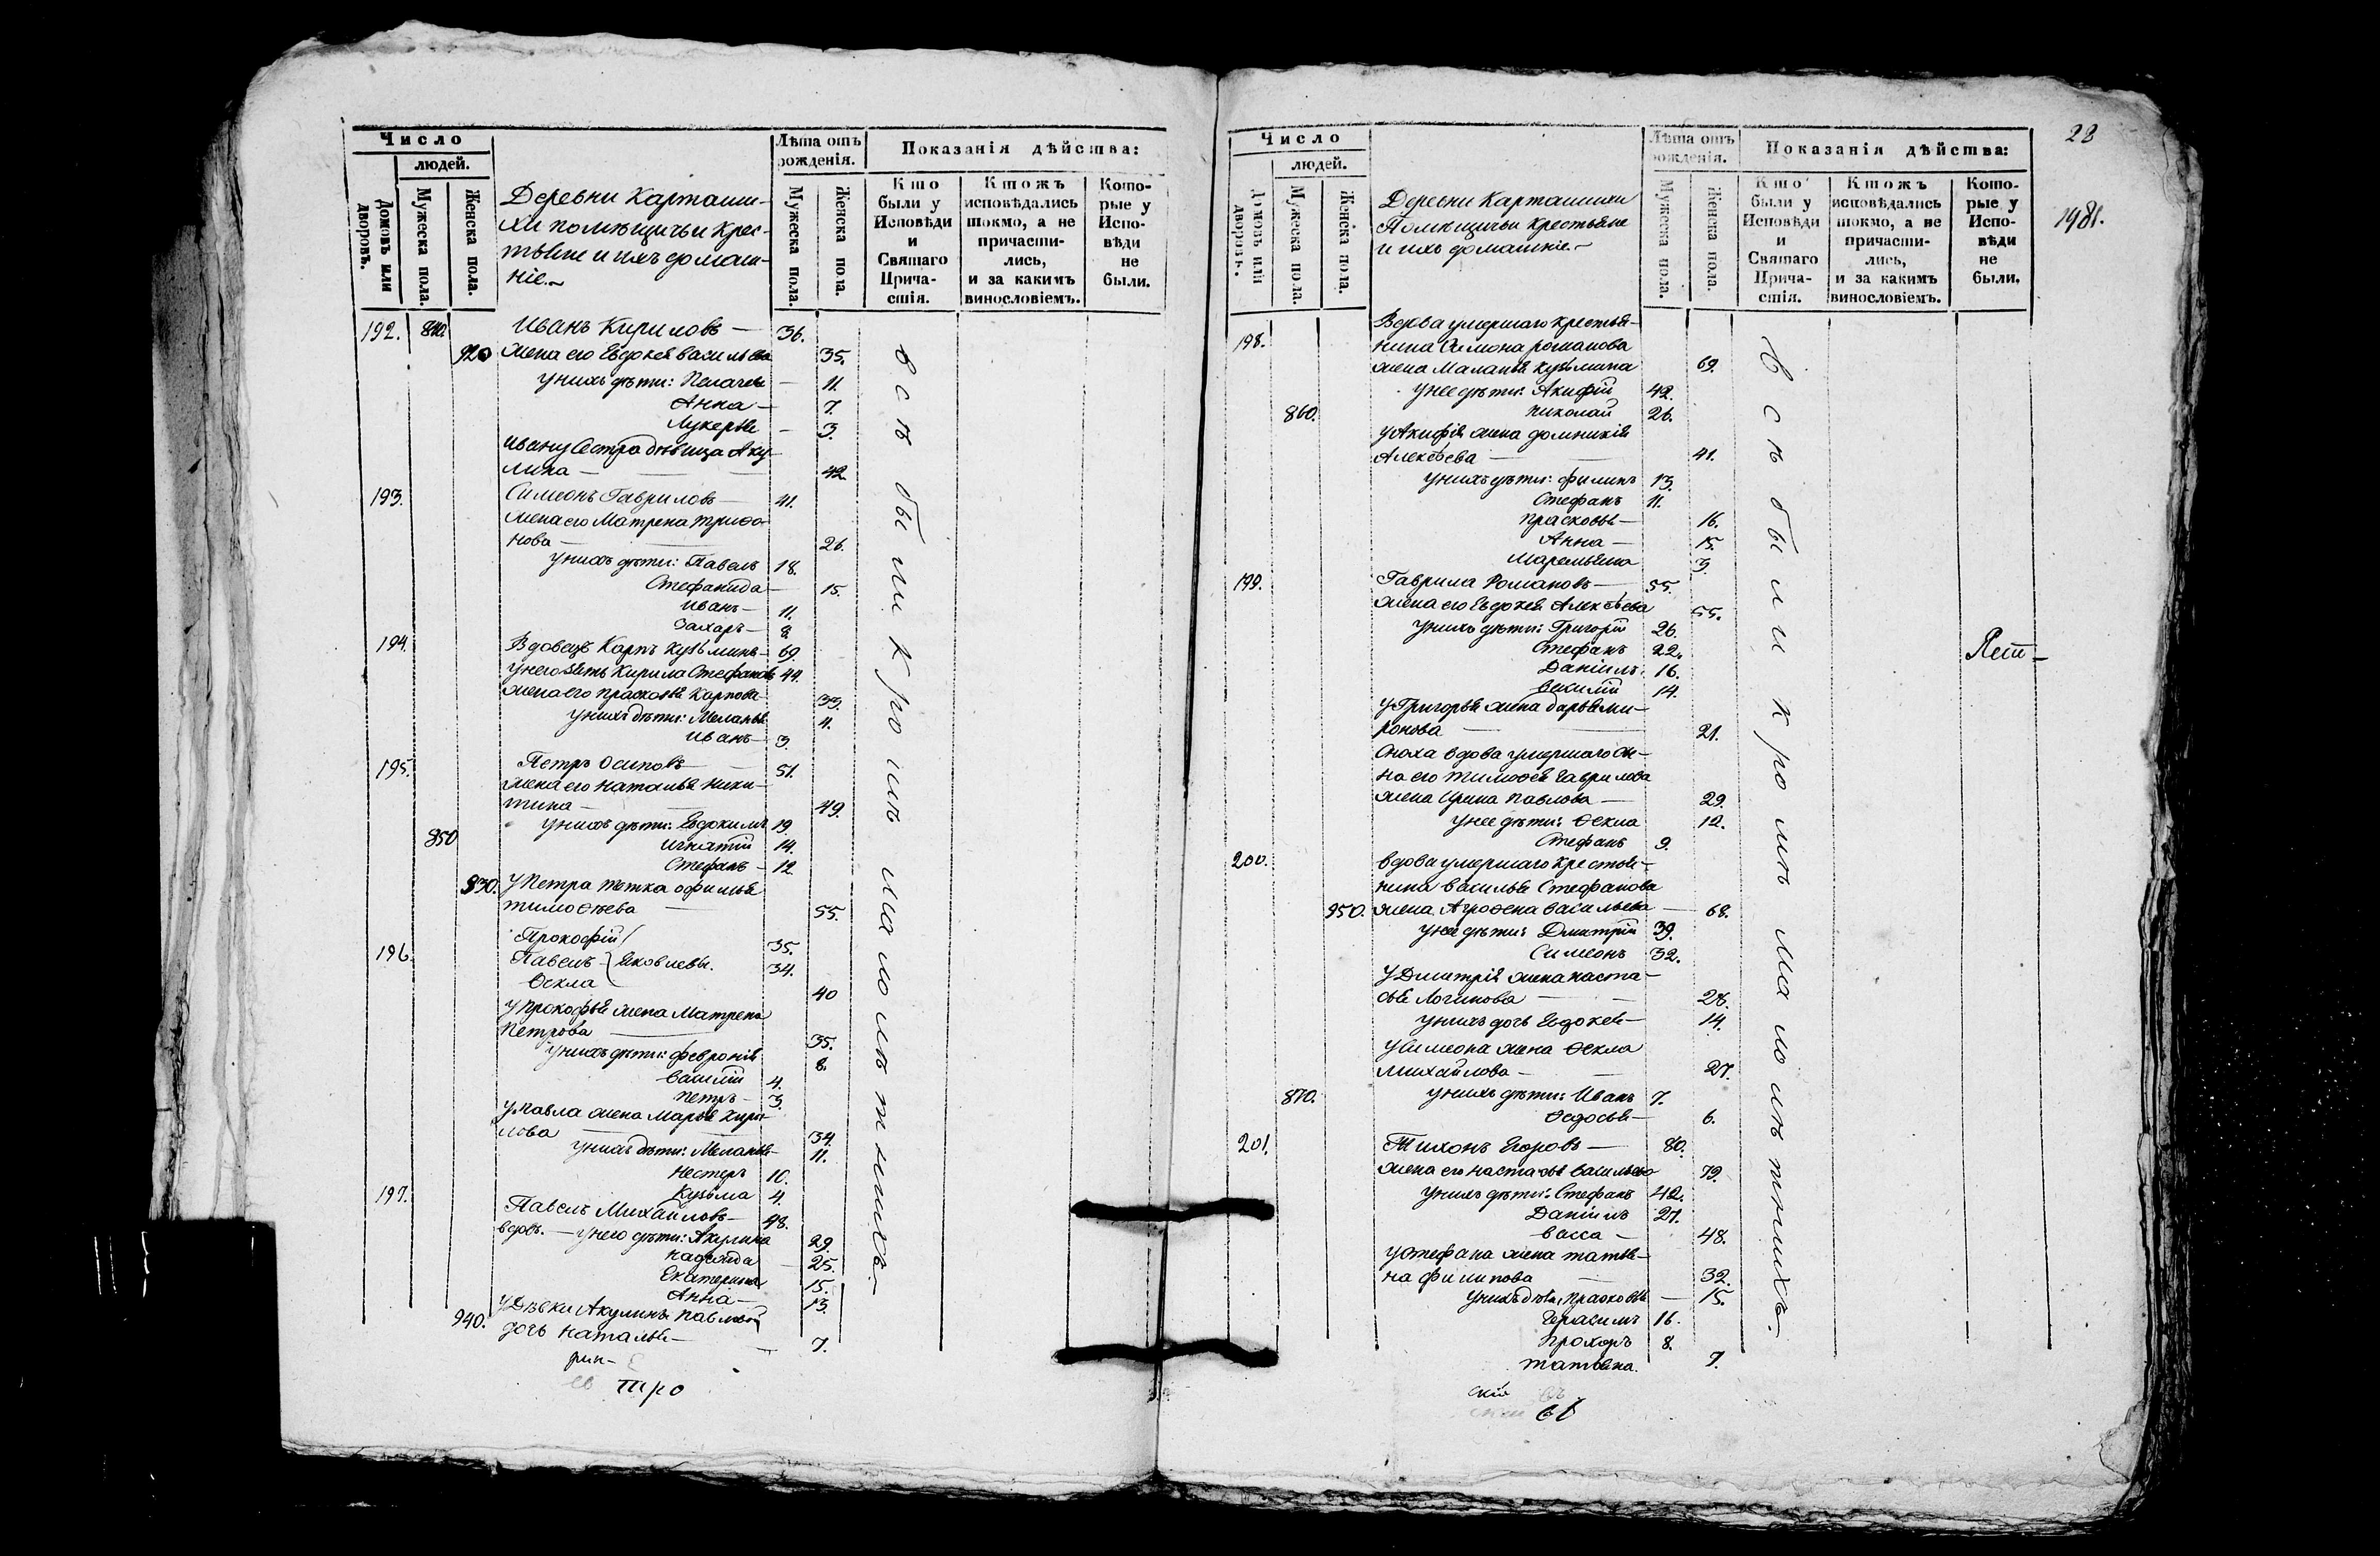 Число
людей.
Домовъ или дворовъ.
Мужеска пола.
Женска пола.
Деревни Карташи-
хи помѣщичьи крес-
тьяне и ихъ домаш-
ніе.~
Лѣта отъ рожденія.
Мужеска пола.
Женска пола.
Показанія дѣйства:
Кто были у Исповѣди и Святаго Причастія.
Ктожъ исповѣдались токмо, а не причастились, и за какимъ винословіемъ.
Которые у Исповѣди не были.
192. 840. Иванъ Кириловъ — 36.
920 жена его Евдокея Васильева 35.
у нихъ дѣти: Пелагея — 11.
Анна — 7.
Лукерья — 3.
Ивану Сестра дѣвица Аку-
лина — 42.
193. Симеонъ Гавриловъ — 41.
жена его Матрена Трифо-
нова — 26.
у нихъ дѣти: Павелъ 18.
Стефанида — 15.
Иванъ — 11.
Захаръ — 8.
194. Вдовецъ Карпъ Кузьминъ — 69.
у него зять Кирила Стефановъ 44.
жена его Прасковья Карпова 33.
у нихъ дѣти: Меланья 4.
Иванъ — 3.
195. Петръ Осиповъ — 51.
жена его Наталья Ники-
тина — 49.
у нихъ дѣти: Евдокимъ 19.
850 Игнатій 14.
Стефанъ — 12.
930. у Петра тетка Офимья
Тимоѳѣева — 55.
Прокофій
196. 35.
Павелъ } Яковлевы. 34.
Ѳекла 40
у Прокофья жена Матрена
Петрова — 35.
у нихъ дѣти: Февронія 8.
Василій 4.
Петръ — 3.
у Павла жена Марья Кири-
лова — 34.
у нихъ дѣти: Меланья — 11.
Нестеръ 10.
Кузьма 4.
197. Павелъ Михайловъ — 48.
вдовъ. — у него дѣти: Акулина 29.
Надежда — 25.
Екатерина 15.
Анна — 13.
у Дѣвки Акулины Павловой
940. дочь Наталья — 7.
всѣ были кромѣ малолѣтнихъ.
рин-
тро
28
1981.
Число
людей.
Домовъ или дворовъ.
Мужеска пола.
Женска пола.
Деревни Карташихи
Помѣщичьи крестьяне
и ихъ домашніе.~
Лѣта отъ рожденія.
Мужеска пола.
Женска пола.
Показанія дѣйства:
Кто были у Исповѣди и Святаго Причастія.
Ктожъ исповѣдались токмо, а не причастились, и за какимъ винословіемъ.
Которые у Исповѣди не были.
198. Вдова умершаго крестья-
нина Симона Романова
жена Маланья Кузьмина 69.
у нее дѣти: Акифій 42.
860. Николай 26.
у Акифія жена Домникія
Алексѣева — 41.
у нихъ дѣти: Филипъ 13.
Стефанъ 11.
Прасковья — 16.
Анна — 15.
Маремьяна 3.
199. Гаврила Романовъ — 55.
жена его Евдокея Алексѣева 55.
у нихъ дѣти: Григорій 26.
Стефанъ 22.
Даніилъ. 16.
Василій 14.
у Григорья жена Дарья Ми-
ронова — 21.
Сноха вдова умершаго сы-
на его Тимоѳея Гаврилова
жена Ирина Павлова — 29.
у нее дѣти: Ѳекла 12.
Стефанъ 9.
200. Вдова умершаго крестья-
нина Василья Стефанова
950. жена Агроѳена Васильева — 68.
у нее дѣти: Дмитрій 39.
Симеонъ 32.
у Дмитрія жена Наста-
сья Логинова — 28.
у нихъ дочь Евдокея — 14.
у Симеона жена Ѳекла
Михайлова — 27.
870. у нихъ дѣти: Иванъ 7.
Ѳедосья — 6.
201. Тихонъ Егоровъ — 80.
жена его Настасья Васильева 79.
у нихъ дѣти: Стефанъ 42.
Даніилъ 27.
Васса — 48.
у Стефана жена Татья-
на Филипова — 32.
у нихъ дѣти: Прасковья — 15.
Герасимъ 16.
Прохоръ 8.
Татьяна. 7.
всѣ были кромѣ малолѣтнихъ.
скій